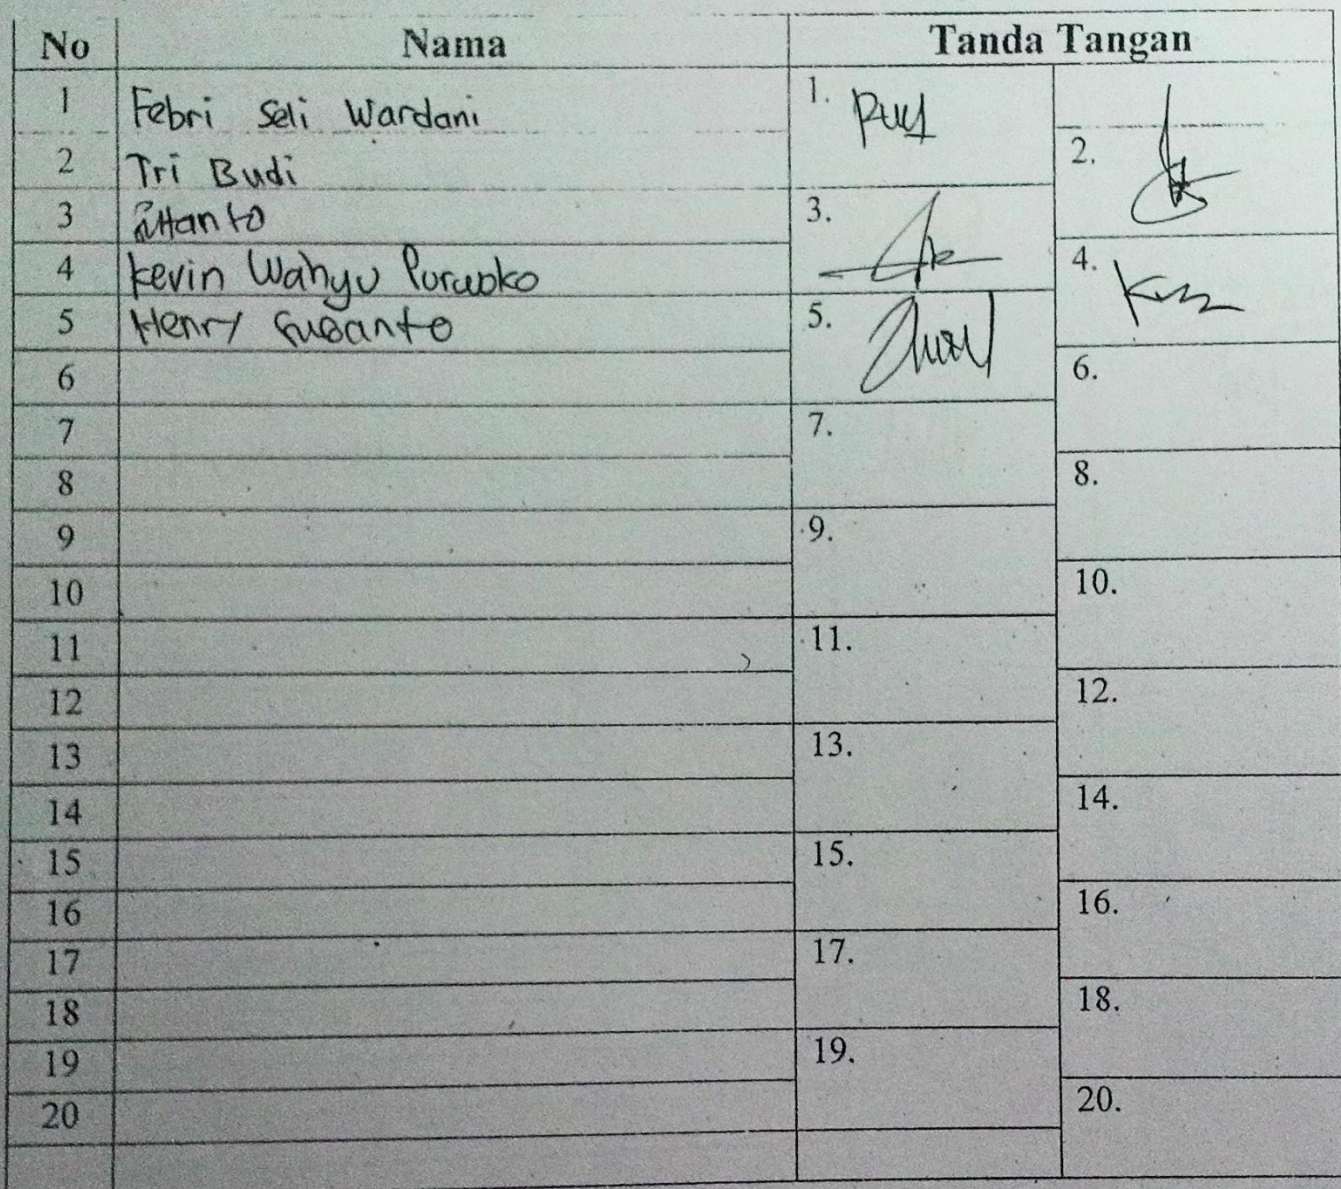 No Nama Tanda Tangan
1 Febri Seli Wardani 1.
2 Tri Budi 2.
3 3.
4 Kevin Wahyu Purwoko 4.
5 Henry Susanto 5.
6 6.
7 7.
8 8.
9 9.
10 10.
11 11.
12 12.
13 13.
14 14.
15 15.
16 16.
17 17.
18 18.
19 19.
20 20.